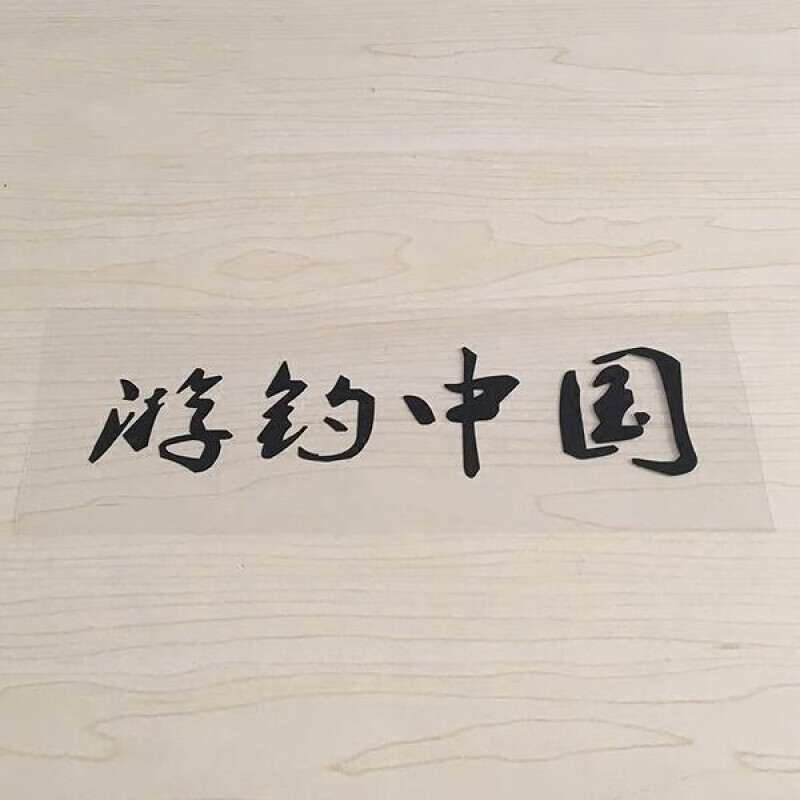 游钓中国